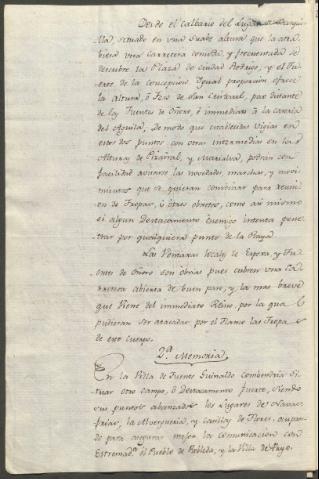 Desde el calbario del Lugar de
lla, situado en una suabe altura que la atra
biesa una carretera comoda, y frecuentada se
descubre la Plaza de ciudad Rodrigo, y el Fu
erte de la concepcion. Igual proporcion ofrece
la altura, ò Teso de San Cristoval, par distante
de los Fuentes de Oñoro, è inmediato à la carrera
del Aguila, De modo que establecidas Vigias en
estos dos puntos con otras intermedias en las
Alturas de Pizarral, y Marialva, podrán con
facilidad avisarse las novedades, marchas, y movi
mientos que se quieran combinar para reunion
de Tropas, ù otros obgetos, como asi mismo
si algun Destacamento Enemigo intenta pene
trar por qualquiera punto de la Raya.
Las Ventanas de Espeja, y Fu
entes de Oñoro son obras pues cubren una ca
rretera abierta de buen paso, y la mas breve
que Viene del inmediato Reino, por la que
pudieran ser atacadas por el Flanco las Tropas
de este cuerpo.
2.ª Memoria
En la Villa de Fuente Guinaldo combendria si
tuar otro campo, ò Destacamento fuerte, siendo
sus puntos abanzados los Lugares de Navas
frias, la Alvergueria, y casillas de Flores, ocupan
do para asegurar mejor la comunicacion con
Estremad.ª el Pueblo de Robleda, y la Villa de Payo.